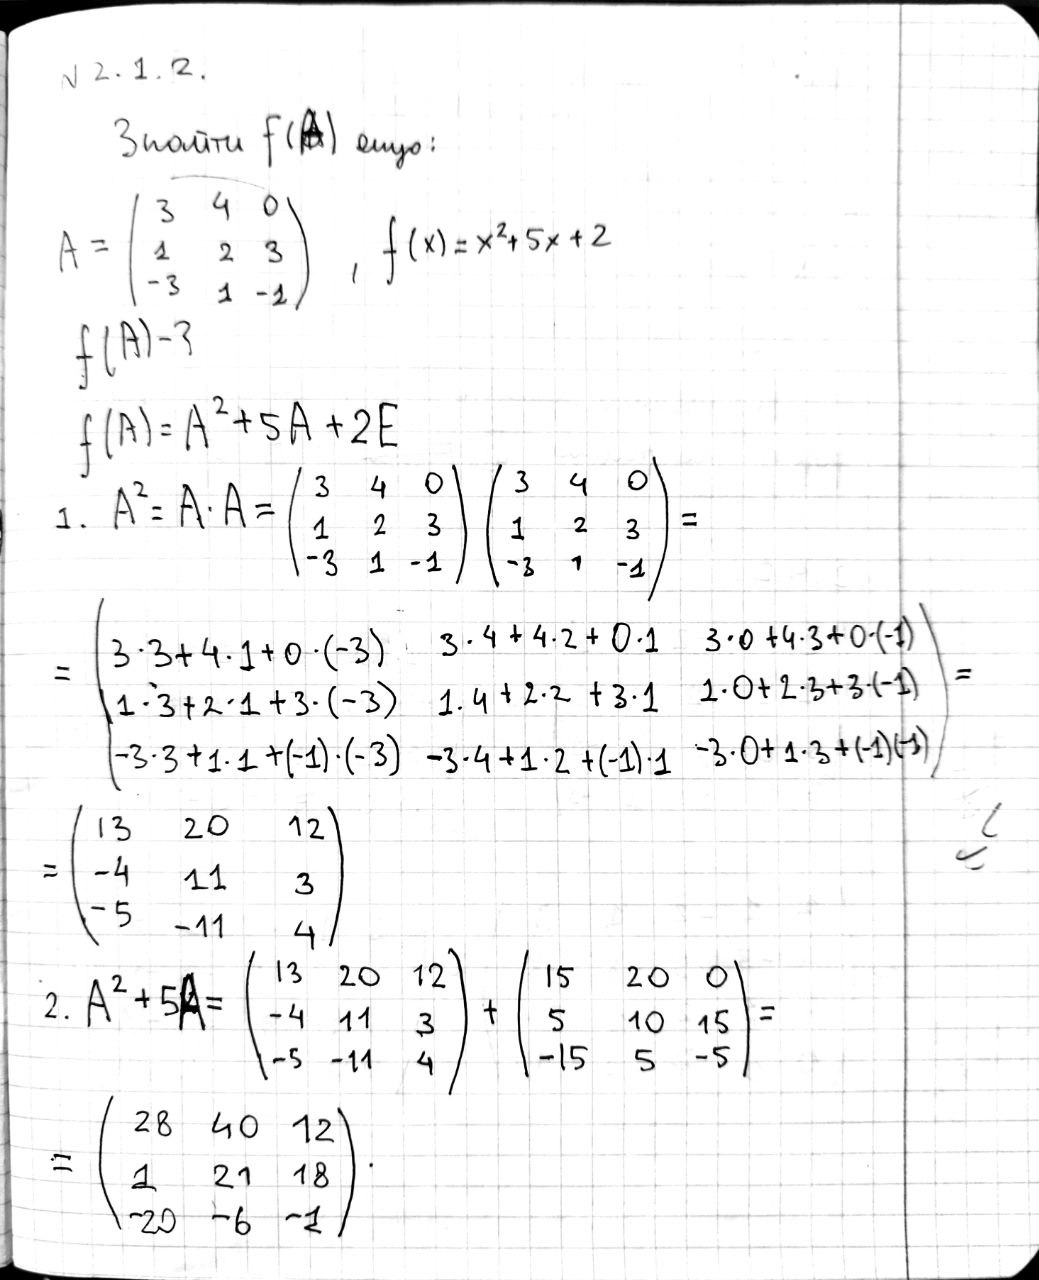 N 2.1.2.
Знайти f(A) якщо:
A = ( 3 4 0
1 2 3
-3 1 -1 ) , f(x) = x² + 5x + 2
f(A) - 3
f(A) = A² + 5A + 2E
1. A² = A · A = ( 3 4 0
1 2 3
-3 1 -1 ) ( 3 4 0
1 2 3
-3 1 -1 ) =
= ( 3·3+4·1+0·(-3) 3·4+4·2+0·1 3·0+4·3+0·(-1)
1·3+2·1+3·(-3) 1·4+2·2+3·1 1·0+2·3+3·(-1)
-3·3+1·1+(-1)·(-3) -3·4+1·2+(-1)·1 -3·0+1·3+(-1)(-1) ) =
= ( 13 20 12
-4 11 3
-5 -11 4 )
2. A² + 5A = ( 13 20 12
-4 11 3
-5 -11 4 ) + ( 15 20 0
5 10 15
-15 5 -5 ) =
= ( 28 40 12
1 21 18
-20 -6 -1 ).